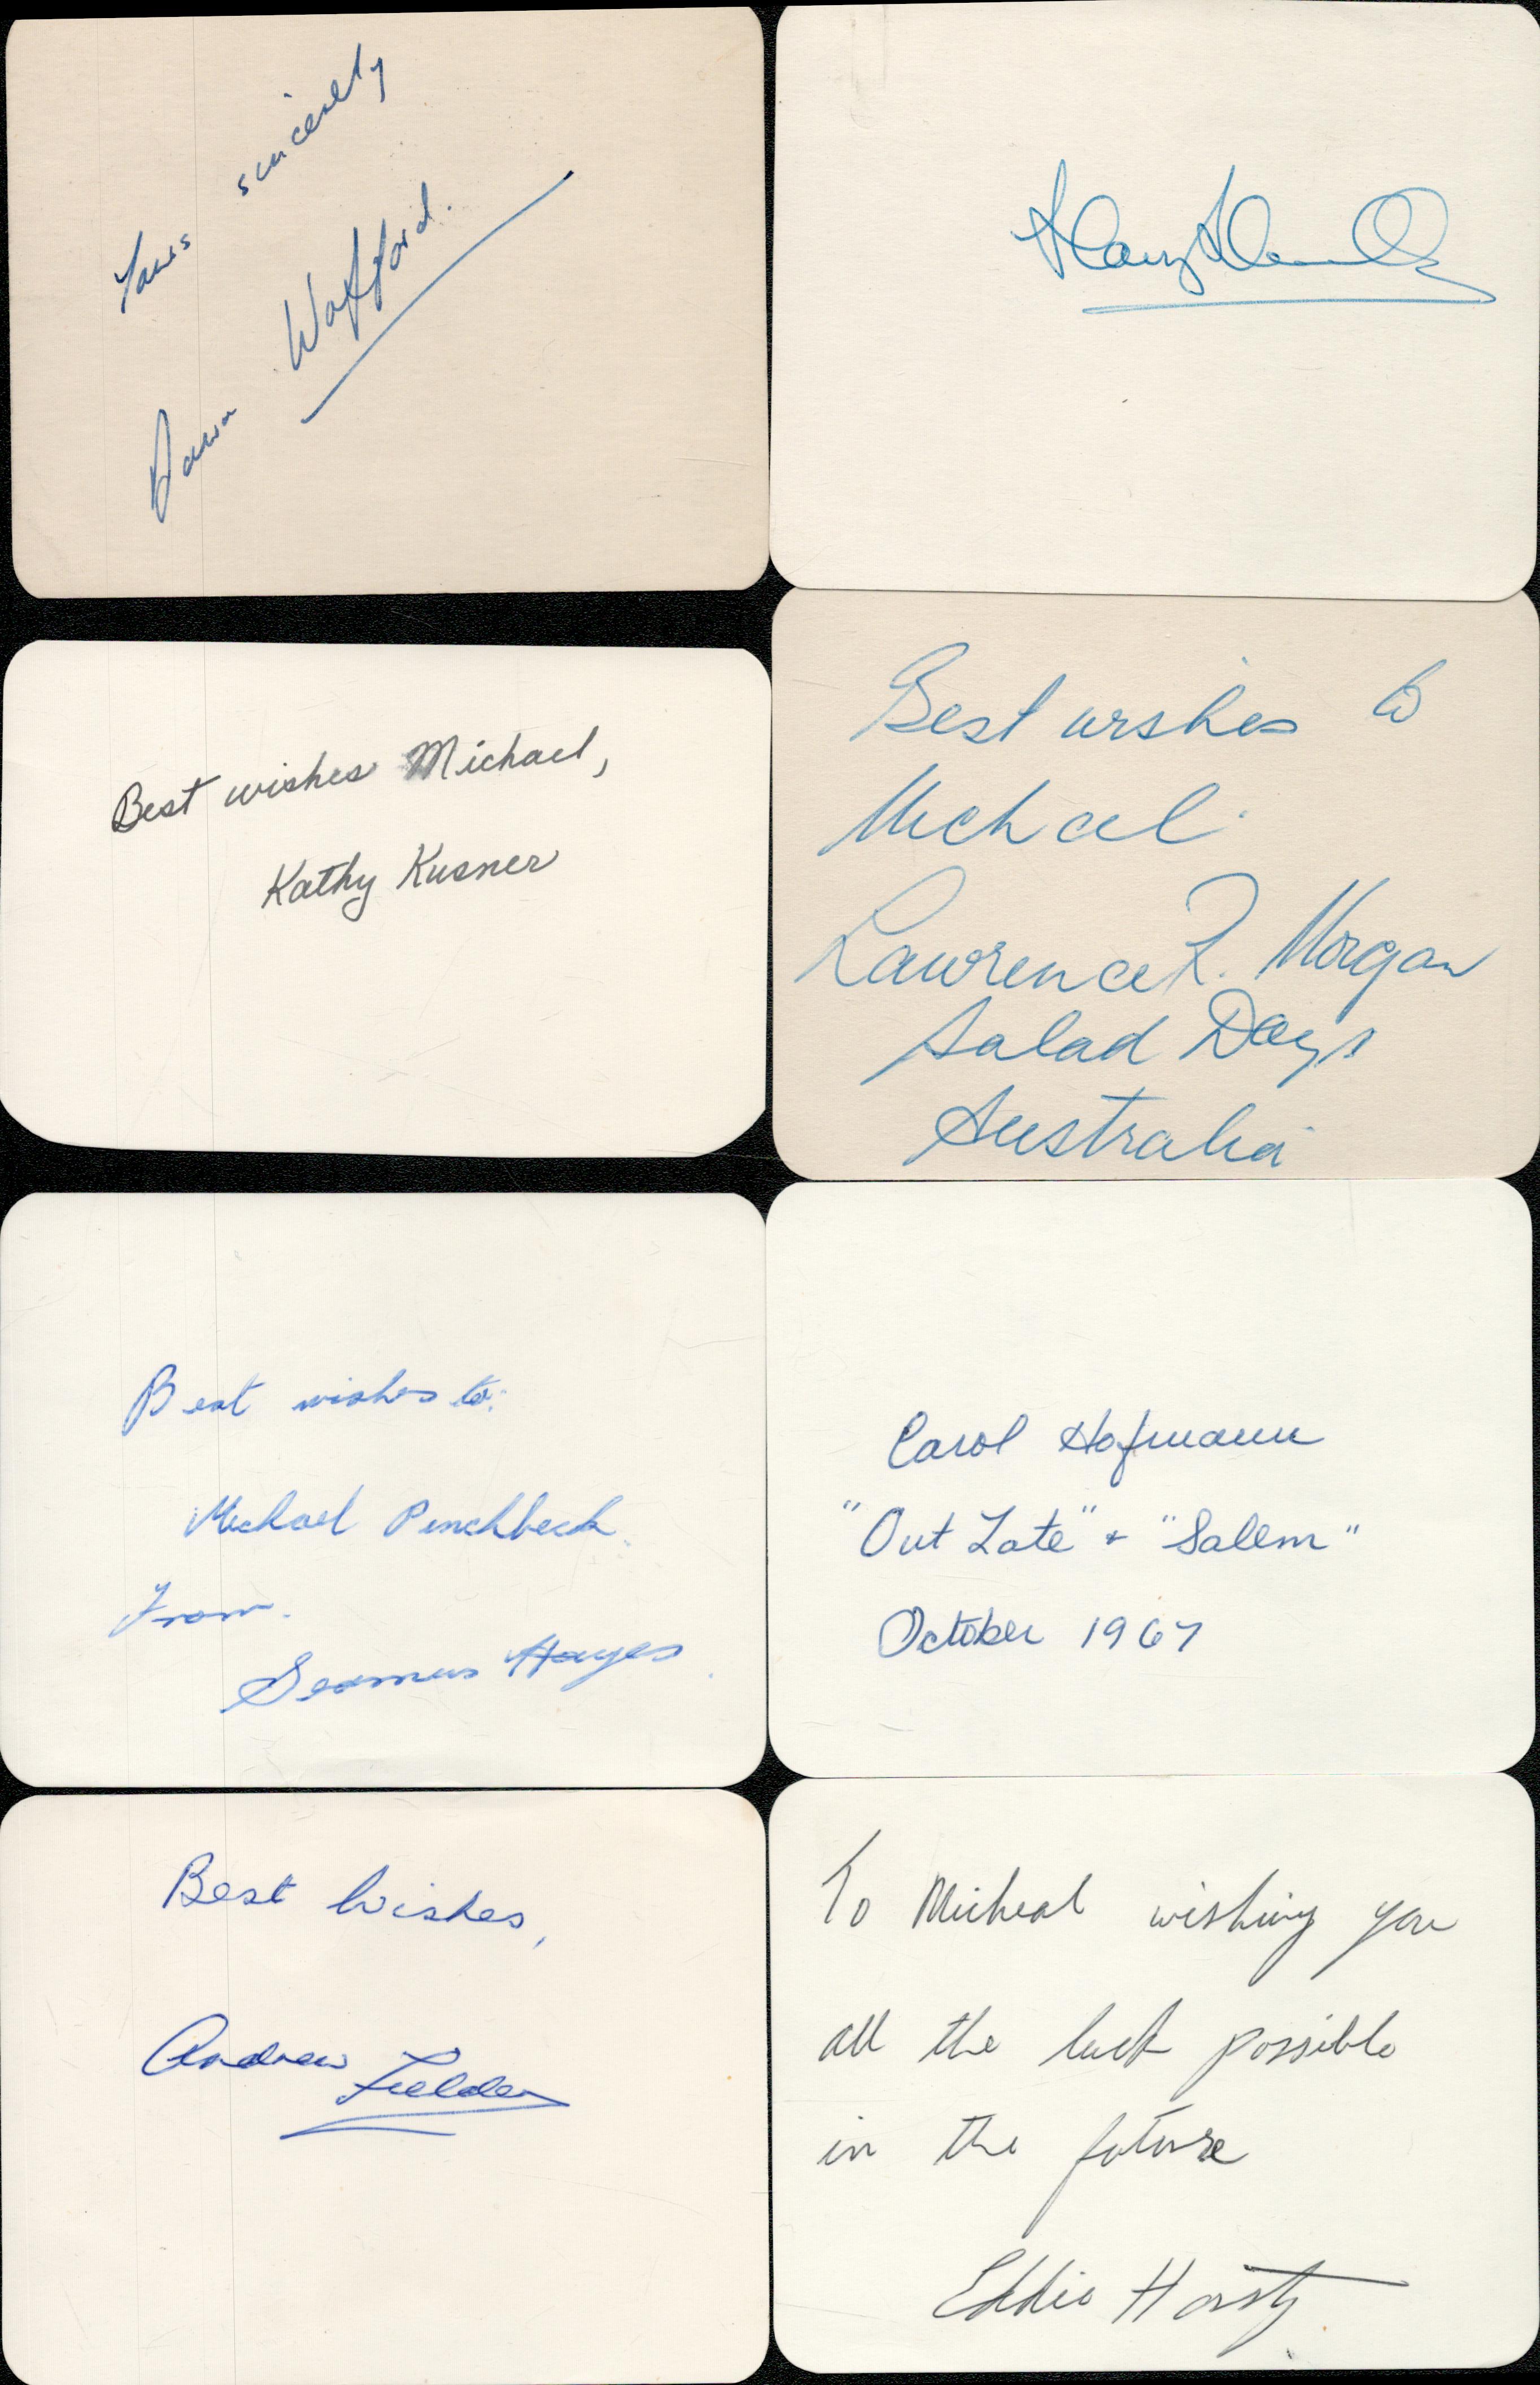 Yours sincerely
Dawn Wofford.
Best wishes Michael,
Kathy Kusner
Best wishes to
Michael.
Lawrence R. Morgan
Salad Days
Australia
Best wishes to:
Michael Pinchbeck.
From.
Seamus Hayes.
Carol Hofmann
"Out Late" + "Salem"
October 1967
Best Wishes,
Andrew Fielder
To Micheal wishing you
all the luck possible
in the future
Eddie